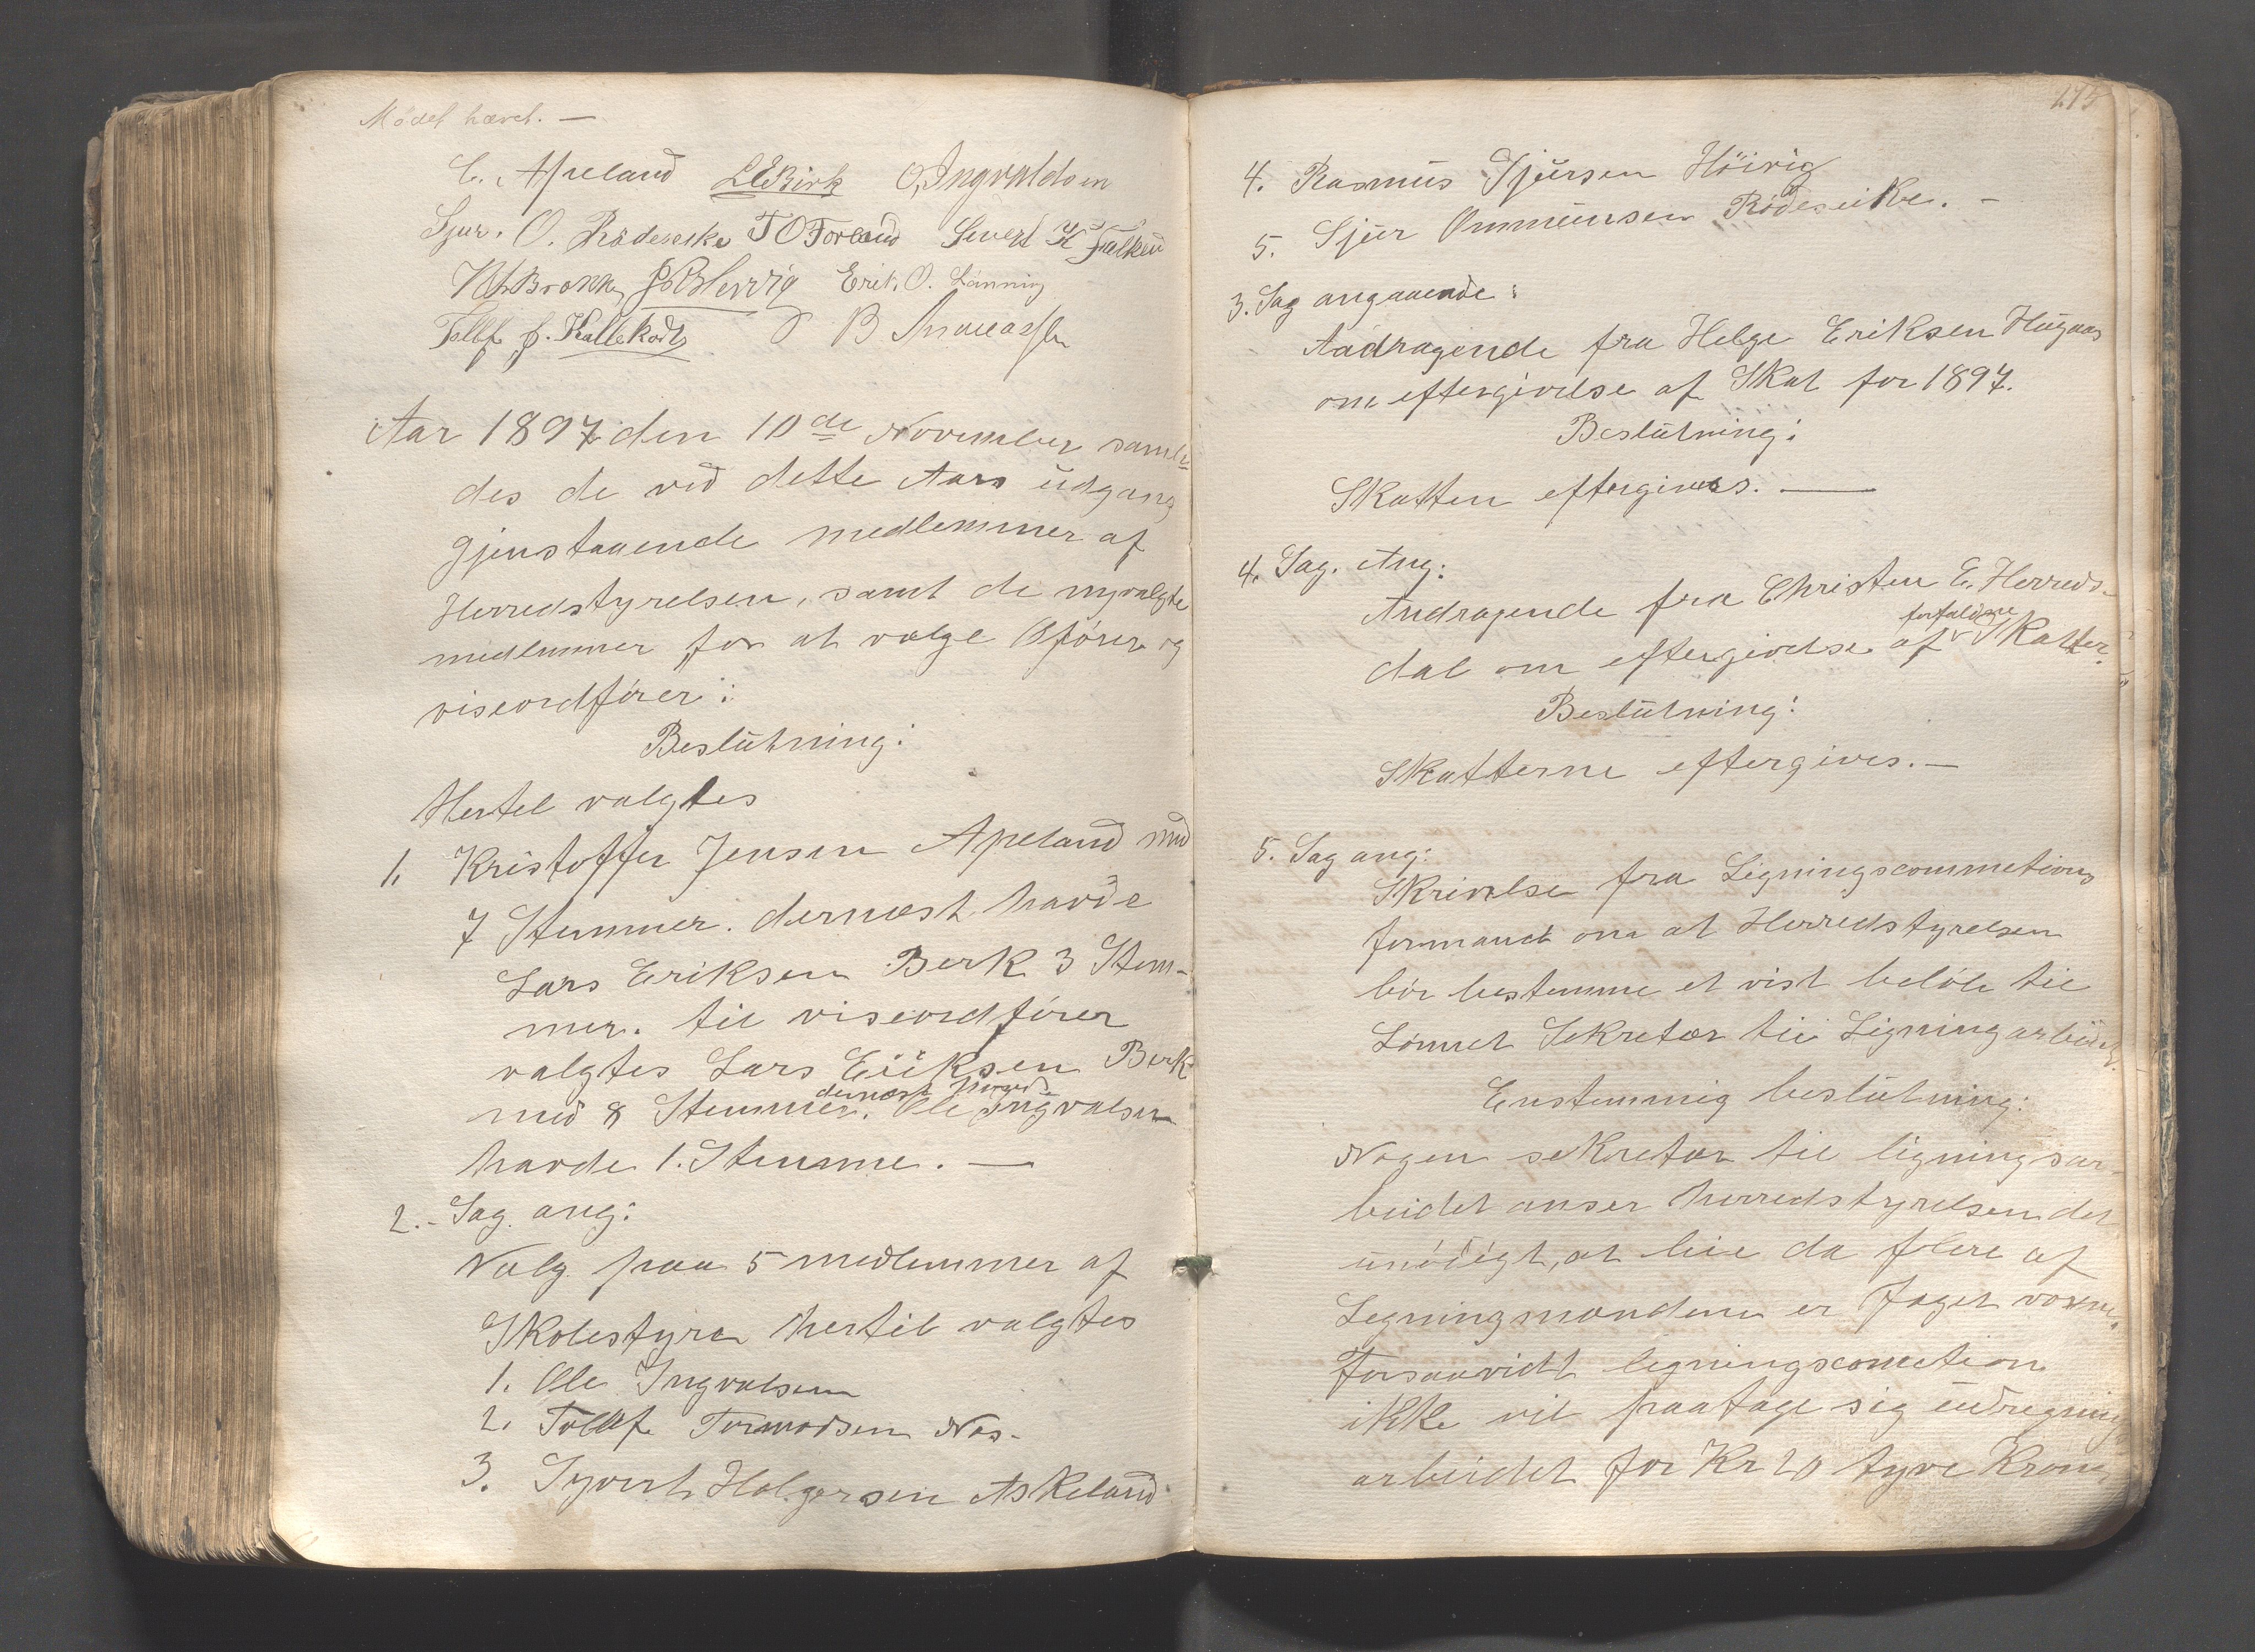 Mødet hævet. —
C. Apeland LEBirk O, Ingvaldsen
Sjur. O. Rødeseike T O Førland Sivert
Erik. O. Lønning
Tollf J. Kallekodt B
Aar 1897 den 10de November samle-
des de ved dette Aars udgang
gjenstaaende medlemmer af
Herredstyrelsen, samt de nyvalgte
medlemmer for at vælge Ofører og
viseordfører:
Beslutning:
Hertel valgtes
1. Kristoffer Jensen Apeland med
7 Stemmer. dernæst havde
Lars Eriksen Berk 3 Stem-
mer. til viseordfører
valgtes Lars Eriksen Berk
med 8 Stemmer. dernæst Ole Ingvalsen
havde 1. Stemme. —
2. - Sag. ang:
Valg paa 5 medlemmer af
Skolestyre hertil valgtes
1. Ole Ingvalsen
2. Tollef Tormodsen Næs-
3. Syvert Holgersen Askeland
175
4. Rasmus Sjursen Höivig
5. Sjur Ommunsen Rödeseike. -
3. Sag angaaende:
Aadragende fra Helge Eriksen Hügaas
om eftergivelse af Skat for 1897.
Beslütning:
Skatten eftergives. —
4. Sag. Ang:
Andragende fra Christen E. Herreds-
dal om eftergivelse af forfaldne Skatter.
Beslütning:
Skatterne eftergives. —
5. Sag ang:
Skrivelse fra Ligningscommetions
formand om at Herredstyrelsen
bør bestemme et vist beløb til
Lønnet Sekretær til Ligningarbeidet.
Enstemmig beslütning:
Nogen sekretær til ligningsar-
beidet anser herredstyrelsen det
unödigt, at leie da flere af
Legningmændene er faget voxne.
Forsaavidt legningscometion
ikke vil paatage sig üdregning
arbeidet for Kr 20 tyve Kroner